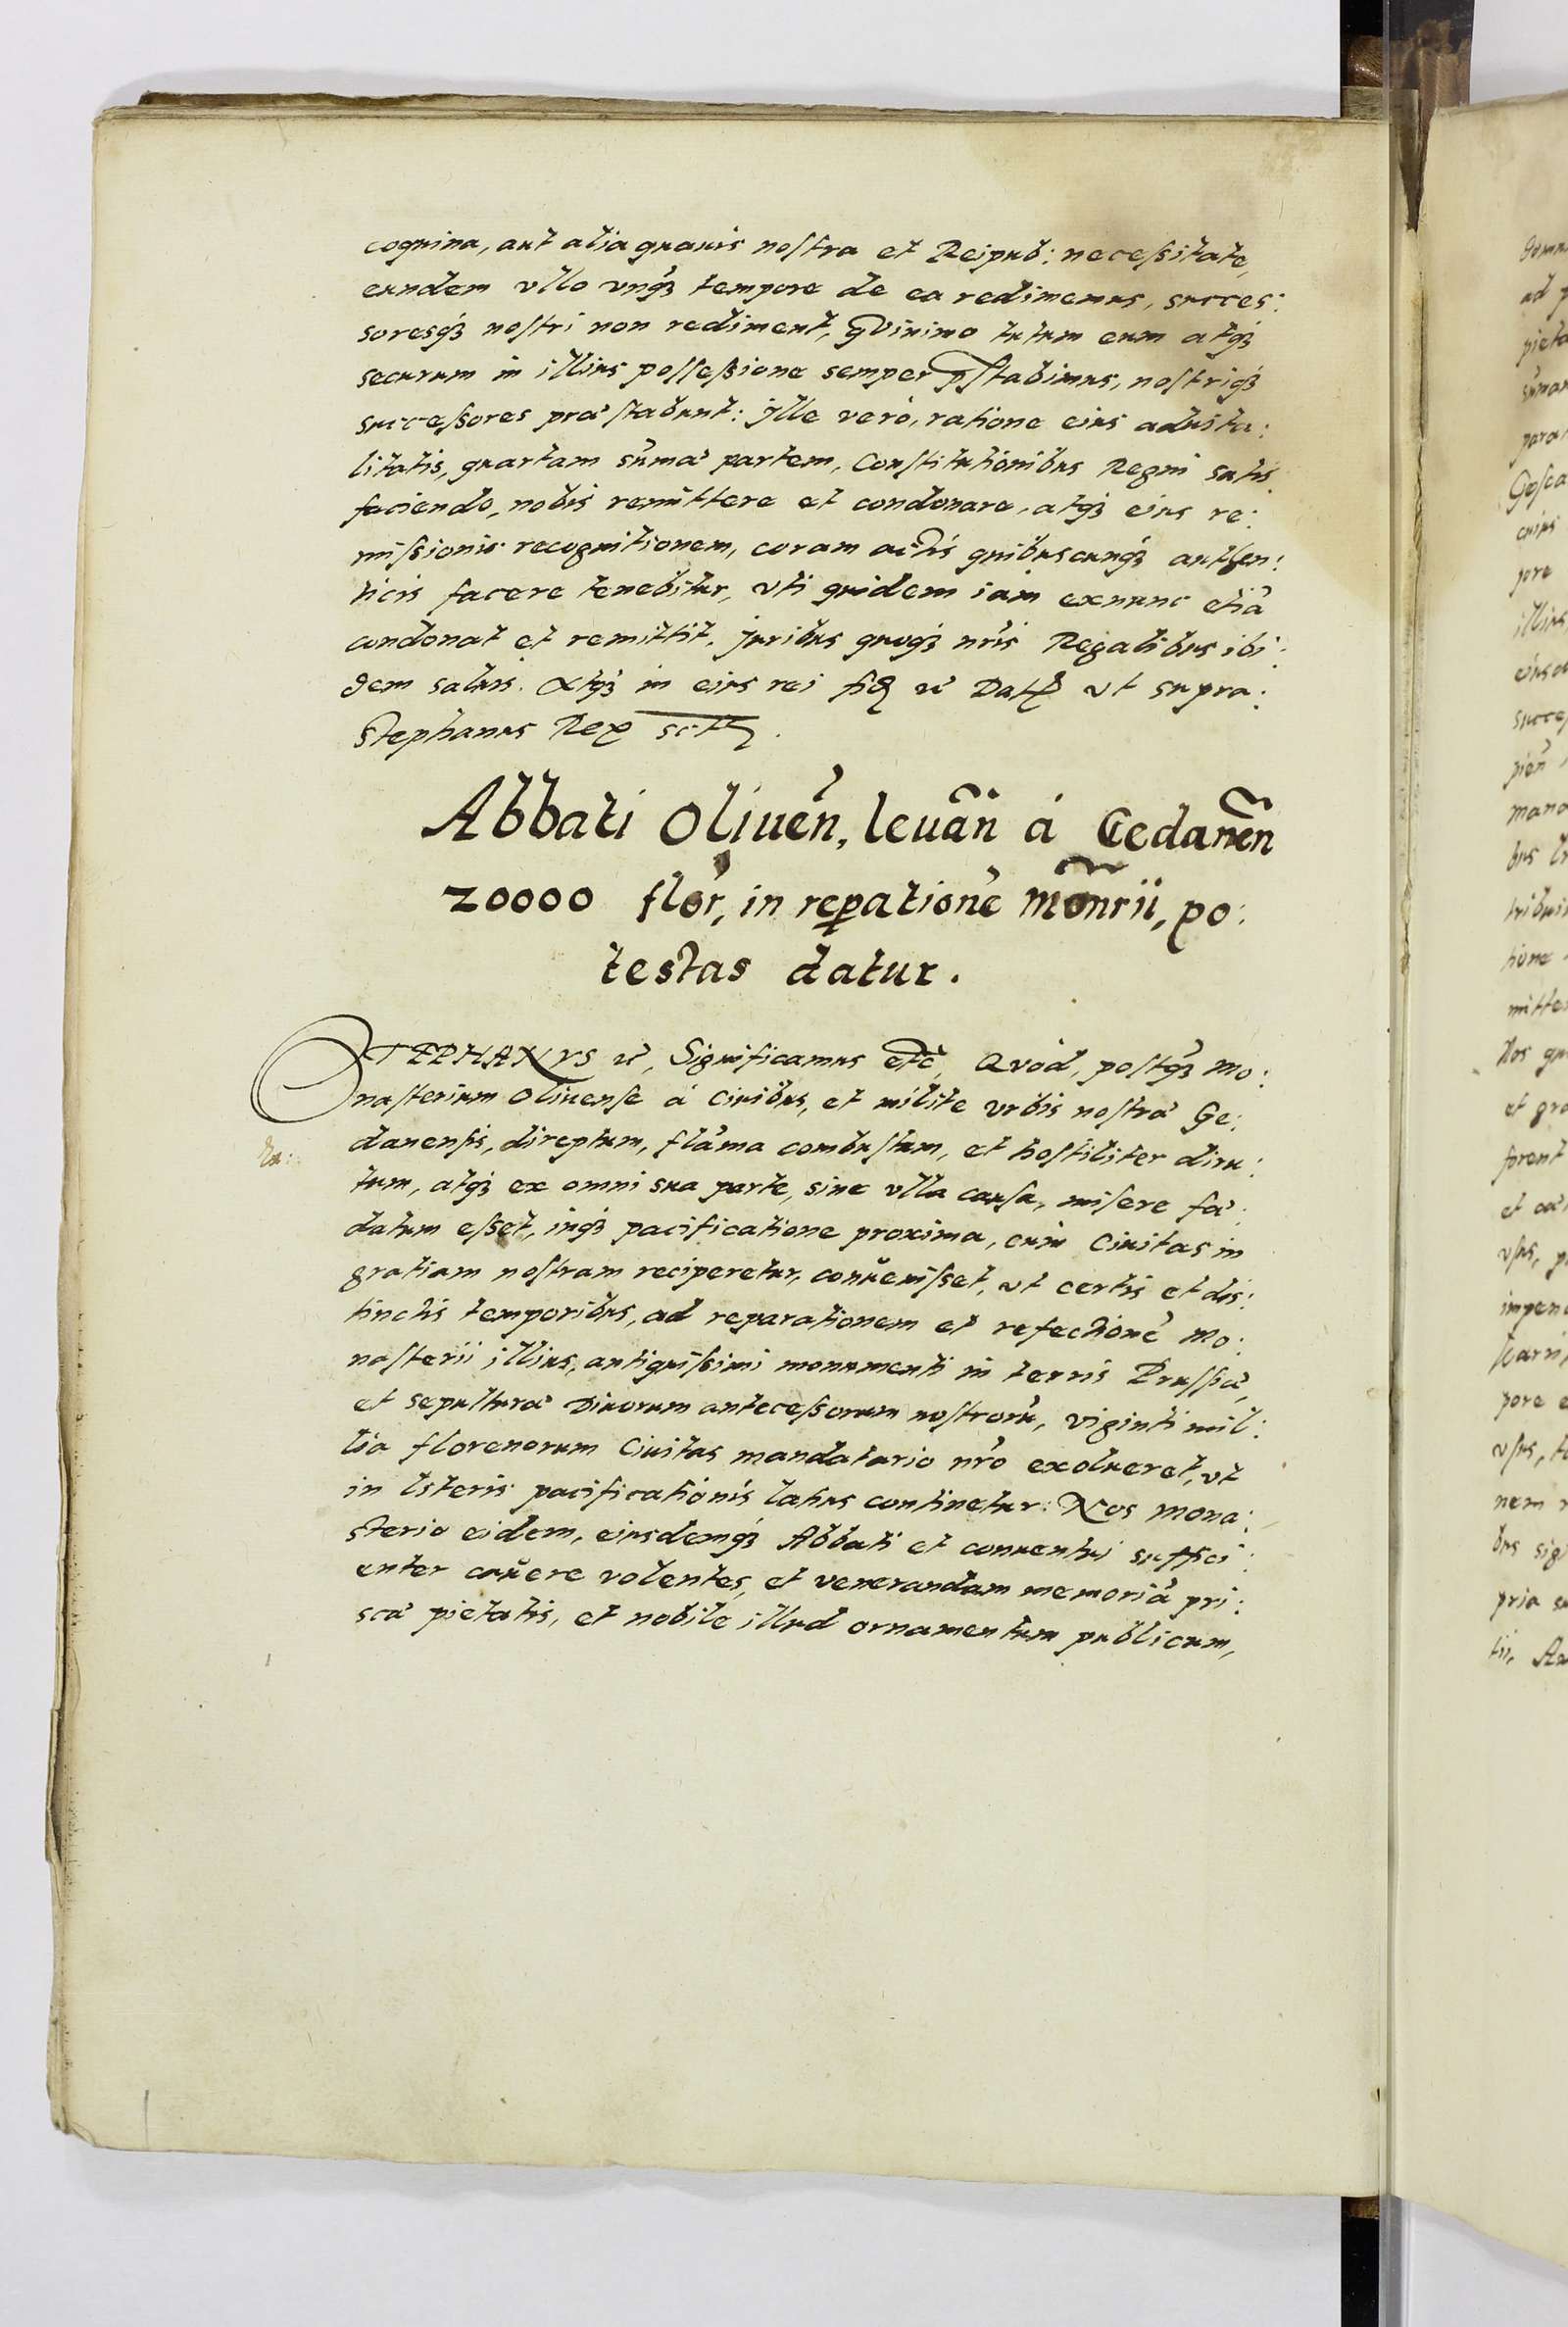 coquina, aut alia quauis nostra et Reipub: necessitate,
eundem vllo vnq3 tempore de ea redimemus, succes:
soresq3 nostri non rediment, qVinimo tutum eum atq3
securum in illius possessione semper pstabimus, nostriq3
successores præstabunt: jlle verò, ratione eius aduita:
litatis, quartam sūmæ partem, Constitutionibus Regni satis
faciendo, nobis remittere et condonare, atq3 eius re:
missionis recognitionem, coram actis quibuscunq3 authen:
ticis facere tenebitur, vti quidem iam exnunc etiā
condonat et remittit. Juribus quoq3 nris Regalibus ibi:
dem saluis. Atq3 in eius rei fid etc Dat vt supra.
Stephanus Rex sctt.
Abbati Oliuen̄, leuān à Gedanēn
20000 flor, in repationē monrii, po:
testas datur.
STEPHANVS etc, Significamus etc, Quòd, postq3 Mo:
nasterium Oliuense à Ciuibus, et milite vrbis nostræ Ge:
danensis, direptum, flāma combustum, et hostiliter diru:
tum, atq3 ex omni sua parte, sine vlla causa, misere fæ:
datum esset, inq3 pacificatione proxima, cum Ciuitas in
gratiam nostram reciperetur, conuenisset, vt certis et dis:
tinctis temporibus, ad reparationem et refectionē Mo:
nasterii illius, antiquissimi monumenti in terris Prussiæ,
et sepulturæ Diuorum antecessorum nostrorū, viginti mil:
lia florenorum Ciuitas mandatario nro exolueret, vt
in lsteris pacificationis latius continetur: Nos Mona:
sterio eidem, eiusdemq3 Abbati et conuentui suffici:
enter cauere volentes, et venerandam memoriā pri:
scæ pietatis, et nobile illud ornamentum publicum,